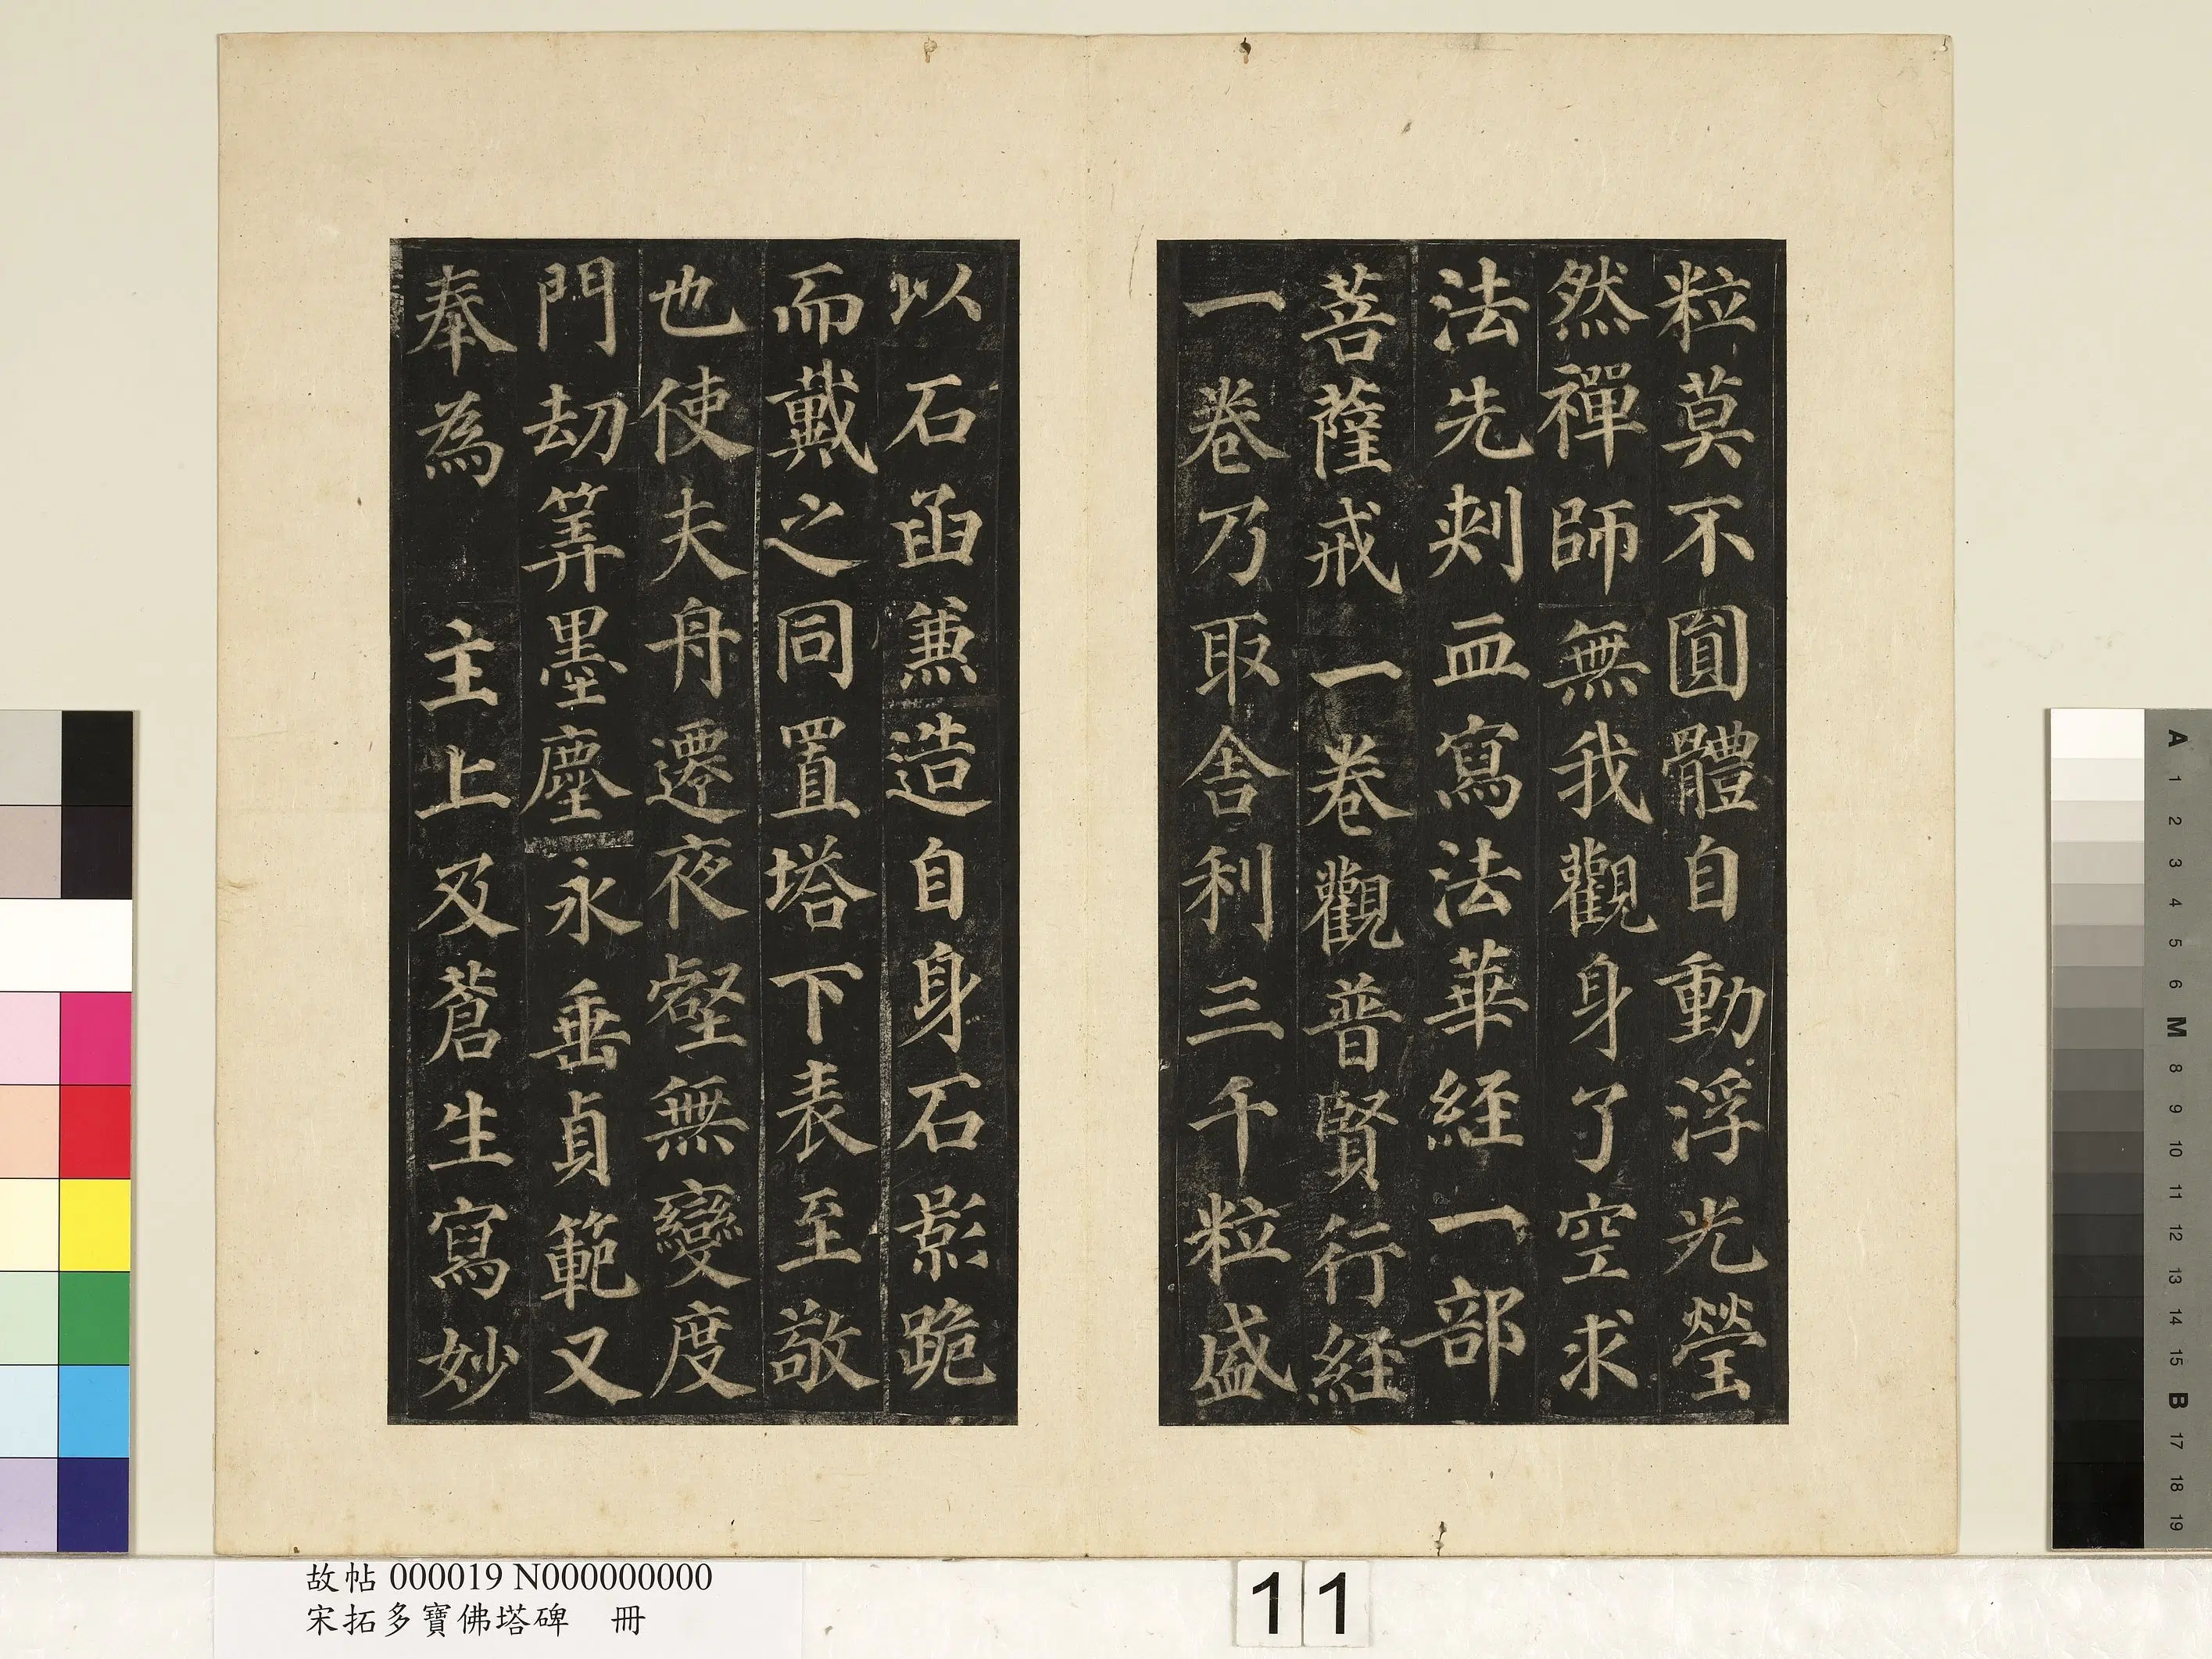 粒莫不圓體自動浮光瑩
然禪師無我觀身了空求
法先刾血寫法華経一部
菩薩戒一卷觀普賢行経
一卷乃取舎利三千粒盛
以石函兼造自身石影跪
而戴之同置塔下表至敬
也使夫舟遷夜壑無變度
門劫筭墨塵永垂貞範又
奉為 主上及蒼生寫妙
故帖 000019 N000000000
宋拓多寶佛塔碑 冊
11
A
1
2
3
4
5
6
M
8
9
10
11
12
13
14
15
B
17
18
19